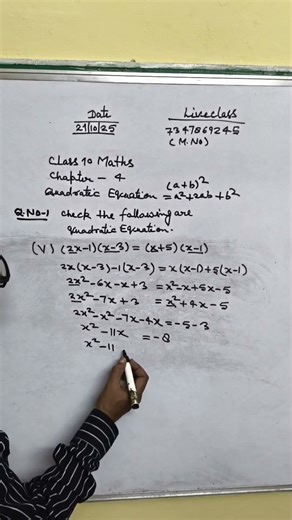 Date Liveclass
21/10/25 7347869245
(M.NO)
Class 10 Maths
Chapter - 4 (a+b)²
Quadratic Equation = a²+2ab+b²
Q.NO-1 Check the following are
quadratic Equation.
(V) (2x-1)(x-3) = (x+5)(x-1)
2x(x-3)-1(x-3) = x(x-1)+5(x-1)
2x²-6x-x+3 = x²-x+5x-5
2x²-7x+3 = x²+4x-5
2x²-x²-7x-4x=-5-3
x²-11x = -8
x²-11